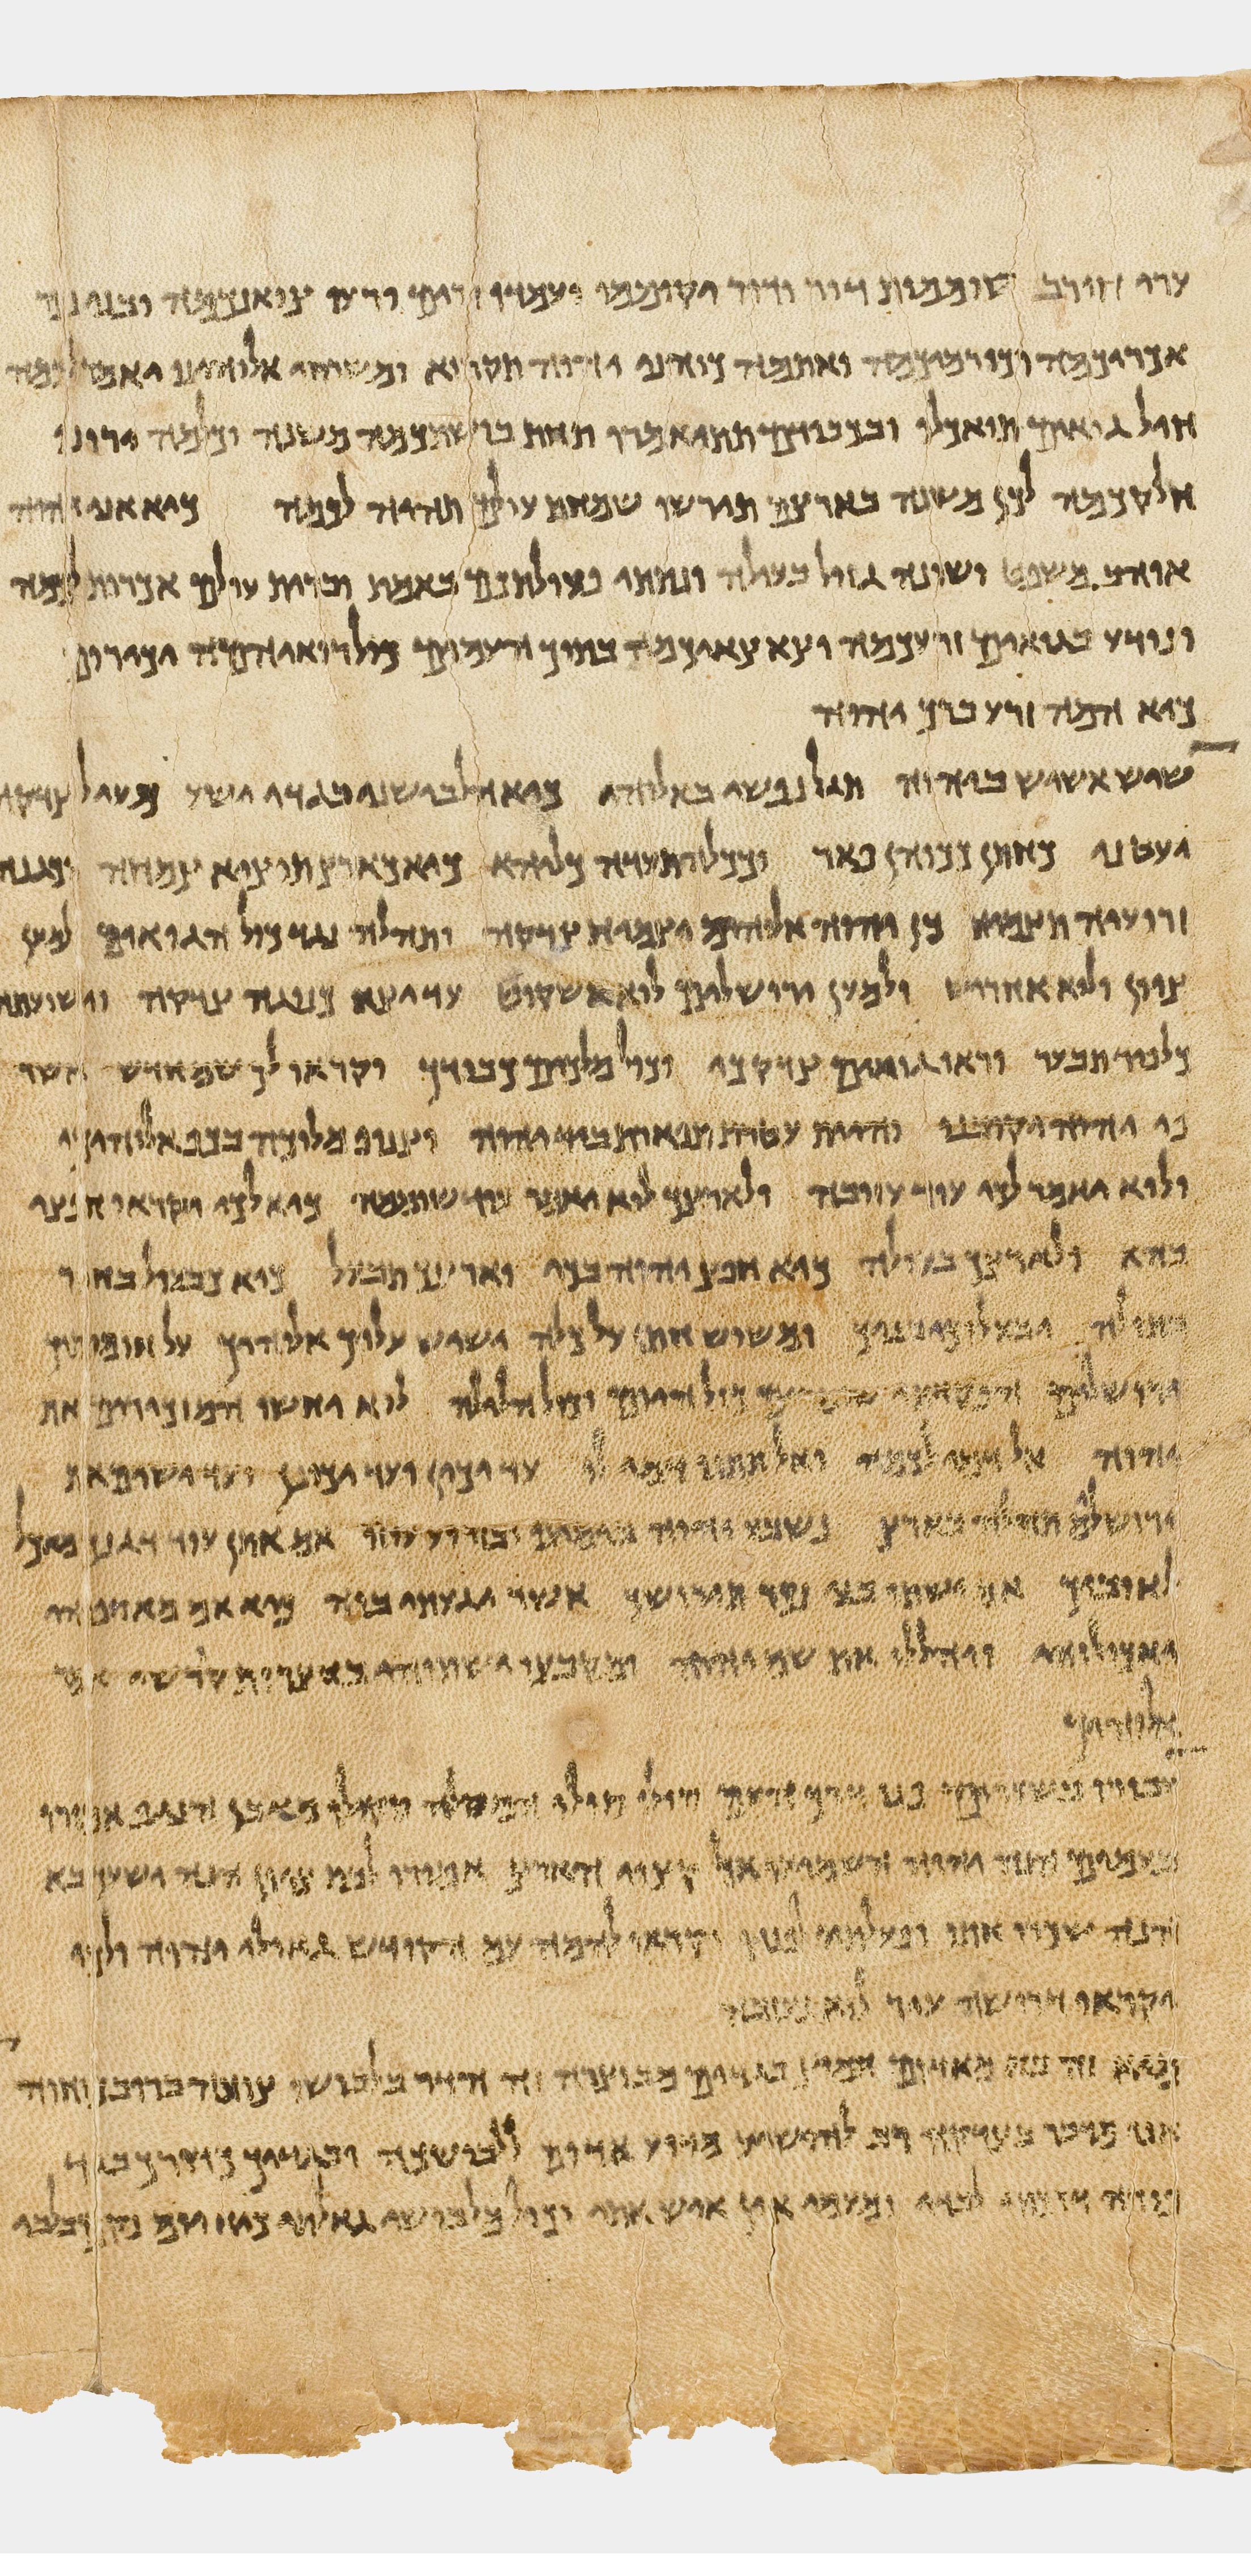 ערי חורב שוממות דור ודור יקוממו ועמדו זרים ורעו צואנכמה ובני נכר
אכריכמה וכורמיכמה ואתמה כוהני יהוה תקראו ומשרתי אלוהינו יאמר לכמה
חיל גואים תואכלו ובכבודם תתיאמרו תחת בושתכמה משנה וכלמה ירונו
חלקכמה לכן משנה בארצם תירשו שמחת עולם תהיה לכמה כיא אני יהוה
אוהב משפט ושונה גזל בעולה ונתתי פעולתכם באמת וברית עולם אכרות לכמה
ונודע בגואים זרעכמה וצאצאיכמה בתוך העמים כול רואיהםה יכירום
כיא המה זרע ברך יהוה
שוש אשוש ביהוה תגל נפשי באלוהי כיא הלבישני בגדי ישע מעיל צדקה
יעטני כחתן ככוהן פאר וככלה תעדה כליהא כיא כארץ תוציא צמחה וכגנה
זרועיה תצמיח כן יהוה אלוהים יצמיח צדקה ותהלה נגד כול הגואים למען
ציון לוא אחריש ולמען ירושלים לוא אשקוט עד יצא כנגה צדקה וישועתה
כלפיד תבער וראו גואים צדקכי וכול מלכים כבודך וקראו לך שם חדש אשר
פי יהוה יקובנו והיית עטרת תפארת ביד יהוה וצניף מלוכה בכף אלוהיך
ולוא יאמר לכי עוד עזובה ולארצך לוא יאמר עוד שוממה כיא לכי יקראו חפצי
בהא ולארצך בעולה כיא חפץ יהוה בכי וארצך תבעל כיא כבעול בחור
בתולה יבעלוך בניך ומשוש חתן על כלה ישיש עליך אלוהיך על חומותיך
ירושלים הפקדתי שומרים כול היום וכול הלילה לוא יחשו המזכירים את
יהוה אל דמי לכמה ואל תתנו דמי לו עד יכין ועד יכונן ועד ישים את
ירושלים תהלה בארץ נשבע יהוה בימינו ובזרוע עוזו אם אתן עוד דגנך מאכל
לאויביך אם ישתו בני נכר תירושך אשר יגעתי בוה כיא אם מאספיהו
יאכלוהו ויהללו את שם יהוה ומקבציו ישתוהו בחצרות קדשי אמר
אלוהיך
עבורו בשערים פנו דרך העם סולו סולו המסלה סקלו מאבן הנגף אמורו
בעמים הנה יהוה השמיע אל קצוי הארץ אמורו לבת ציון הנה ישעך בא
הנה שכרו אתו ופעלתיו לפניו וקראו להמה עם הקודש גאולי יהוה ולך
יקראו דרושה עיר לוא נעזבה
מי זה בא מאדום חמוץ בגדים מבוצרה זה הדור בלבושו צועה ברוב כוחו
אני מדבר בצדקה רב להושיע מדוע אדום ללבושך ובגדיך כדורך בגת
פורה דרכתי לבדי ומעמי אין איש אתי וכול מלבושי גאלתי כיא יום נקם בלבי